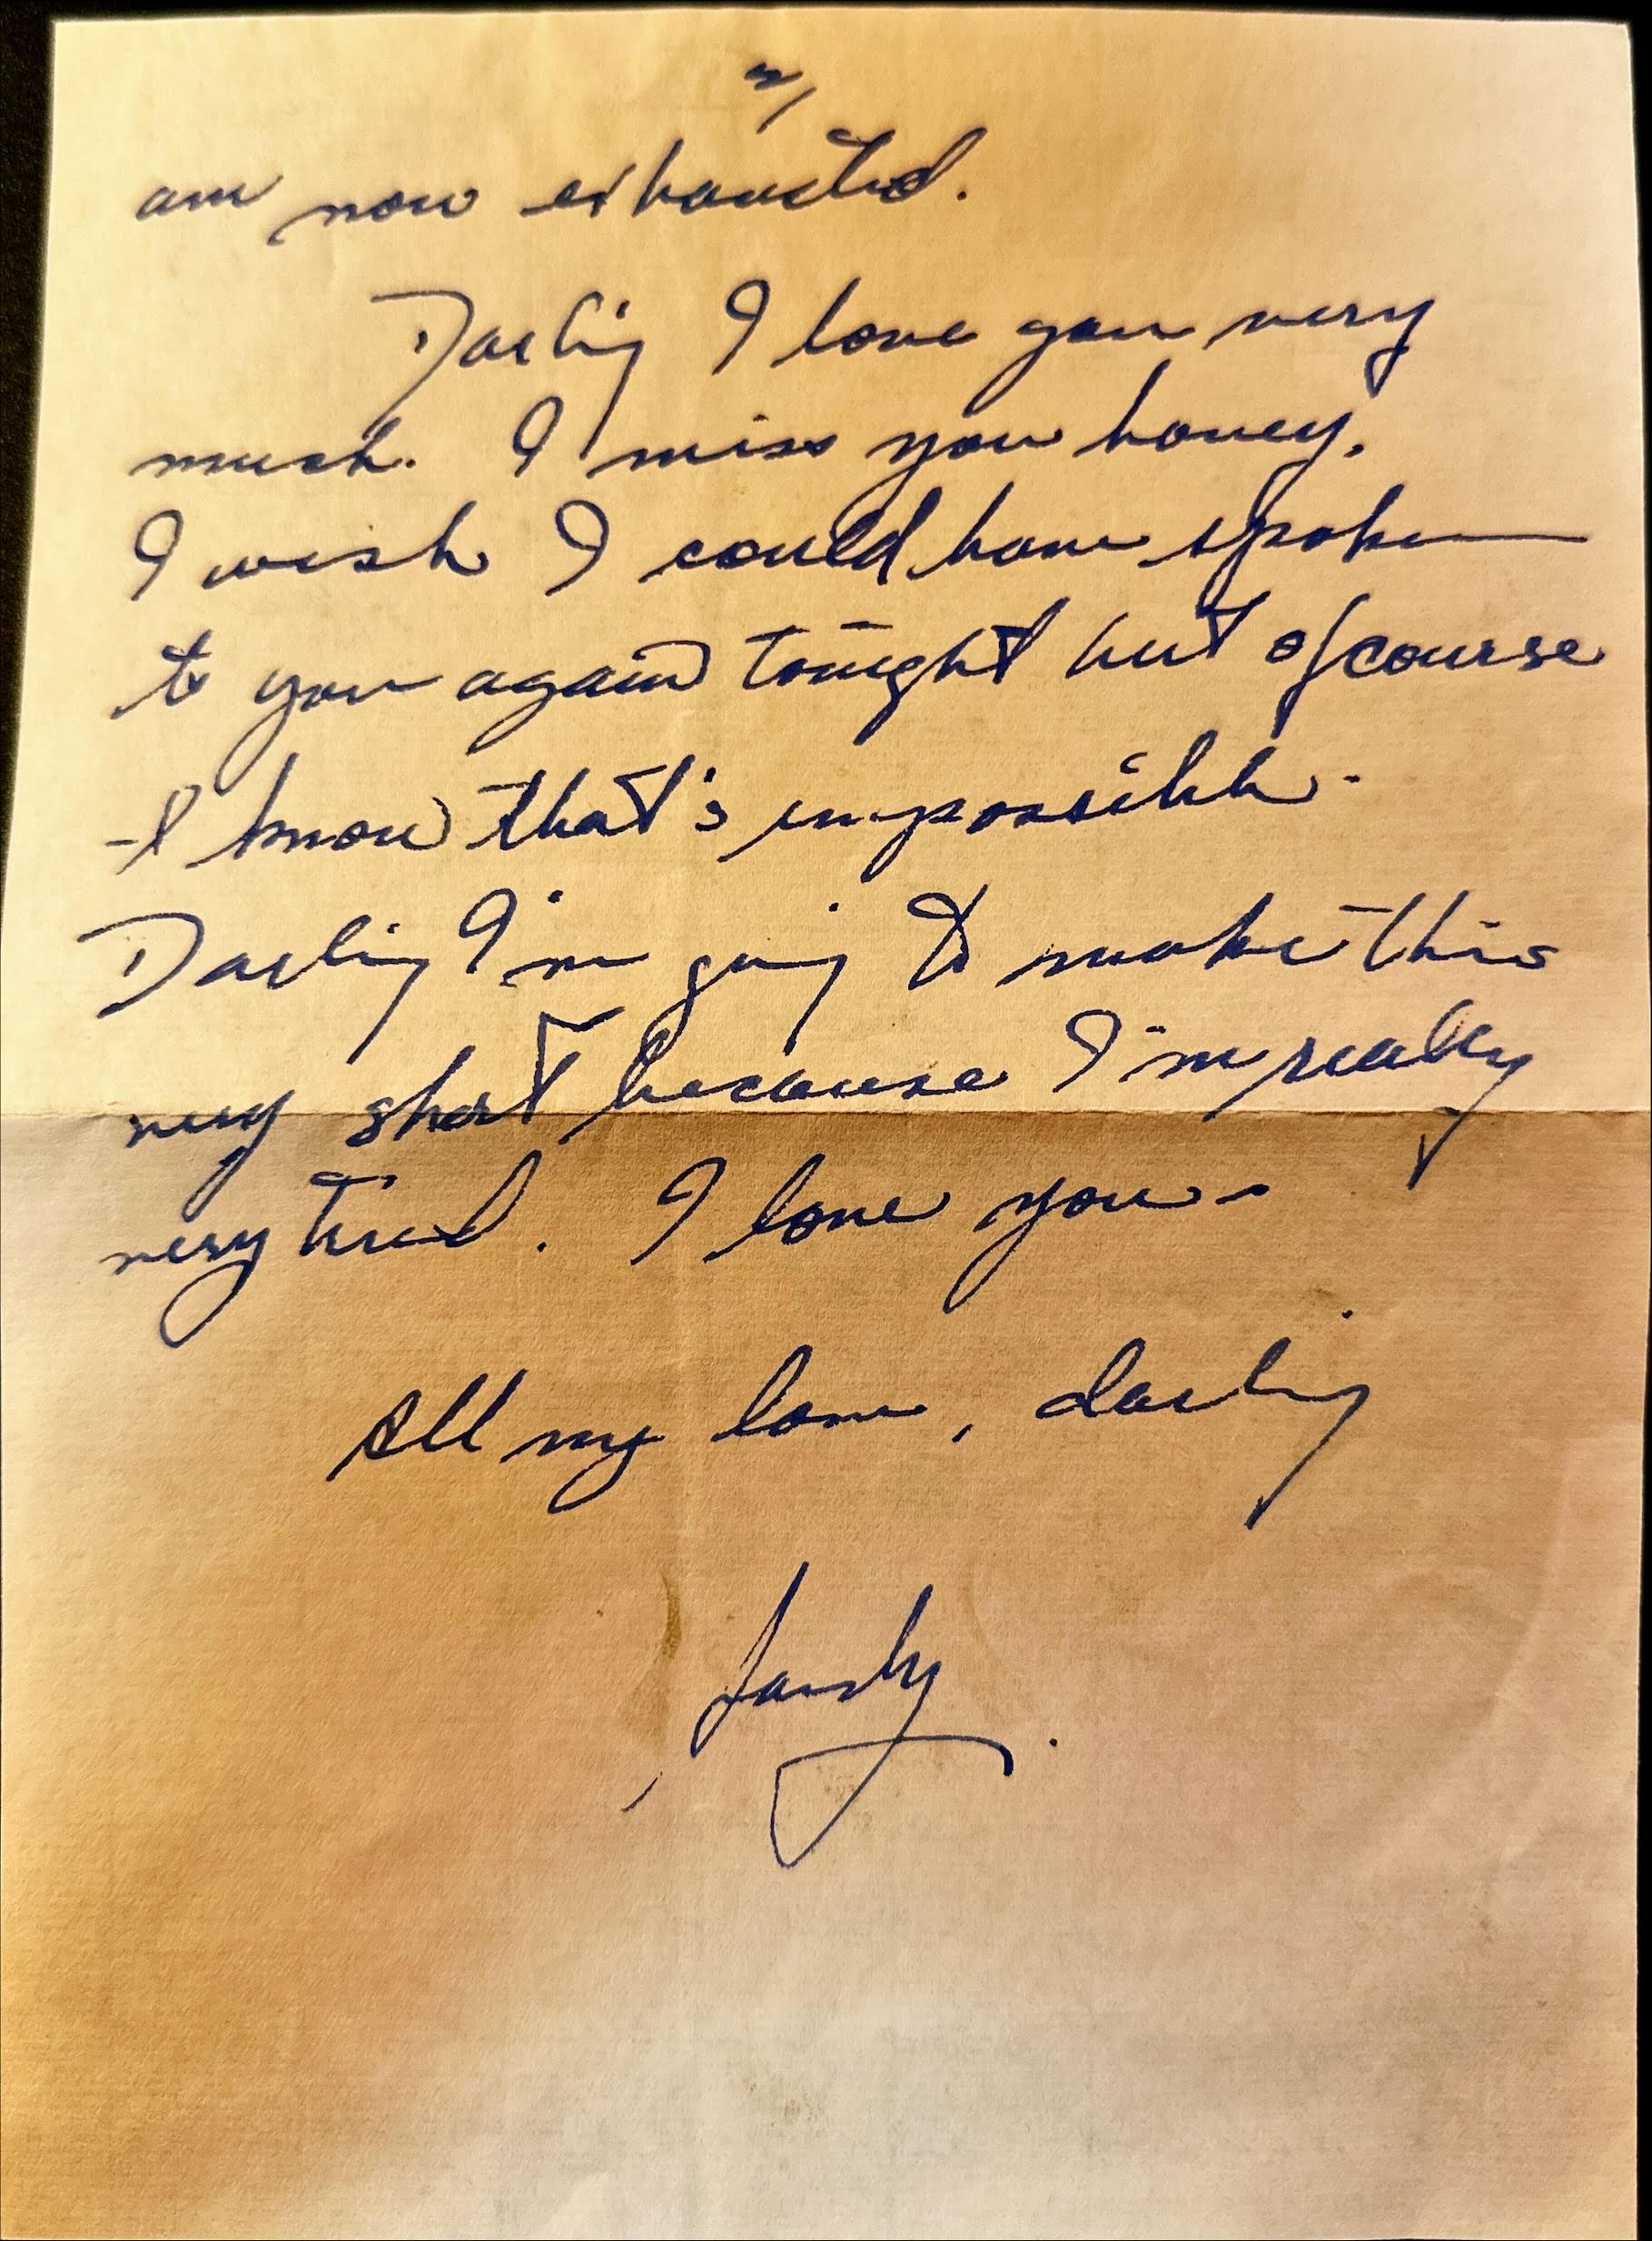 am now exhausted.
Darling I love you very
much. I miss you honey.
I wish I could have spoken
to you again tonight but of course
I know that's impossible.
Darling I'm going to make this
very short because I'm really
very tired. I love you.
All my love, darling
Sandy